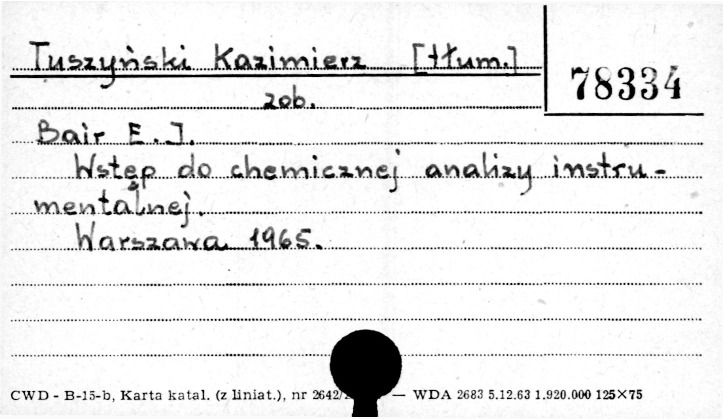 Tuszyński Kazimierz [tłum.]
78334
zob.
Bair E. J.
Wstęp do chemicznej analizy instru-
mentalnej.
Warszawa 1965.
CWD - B-15-b, Karta katal. (z liniat.), nr 2642/ — WDA 2683 5.12.63 1.920.000 125×75